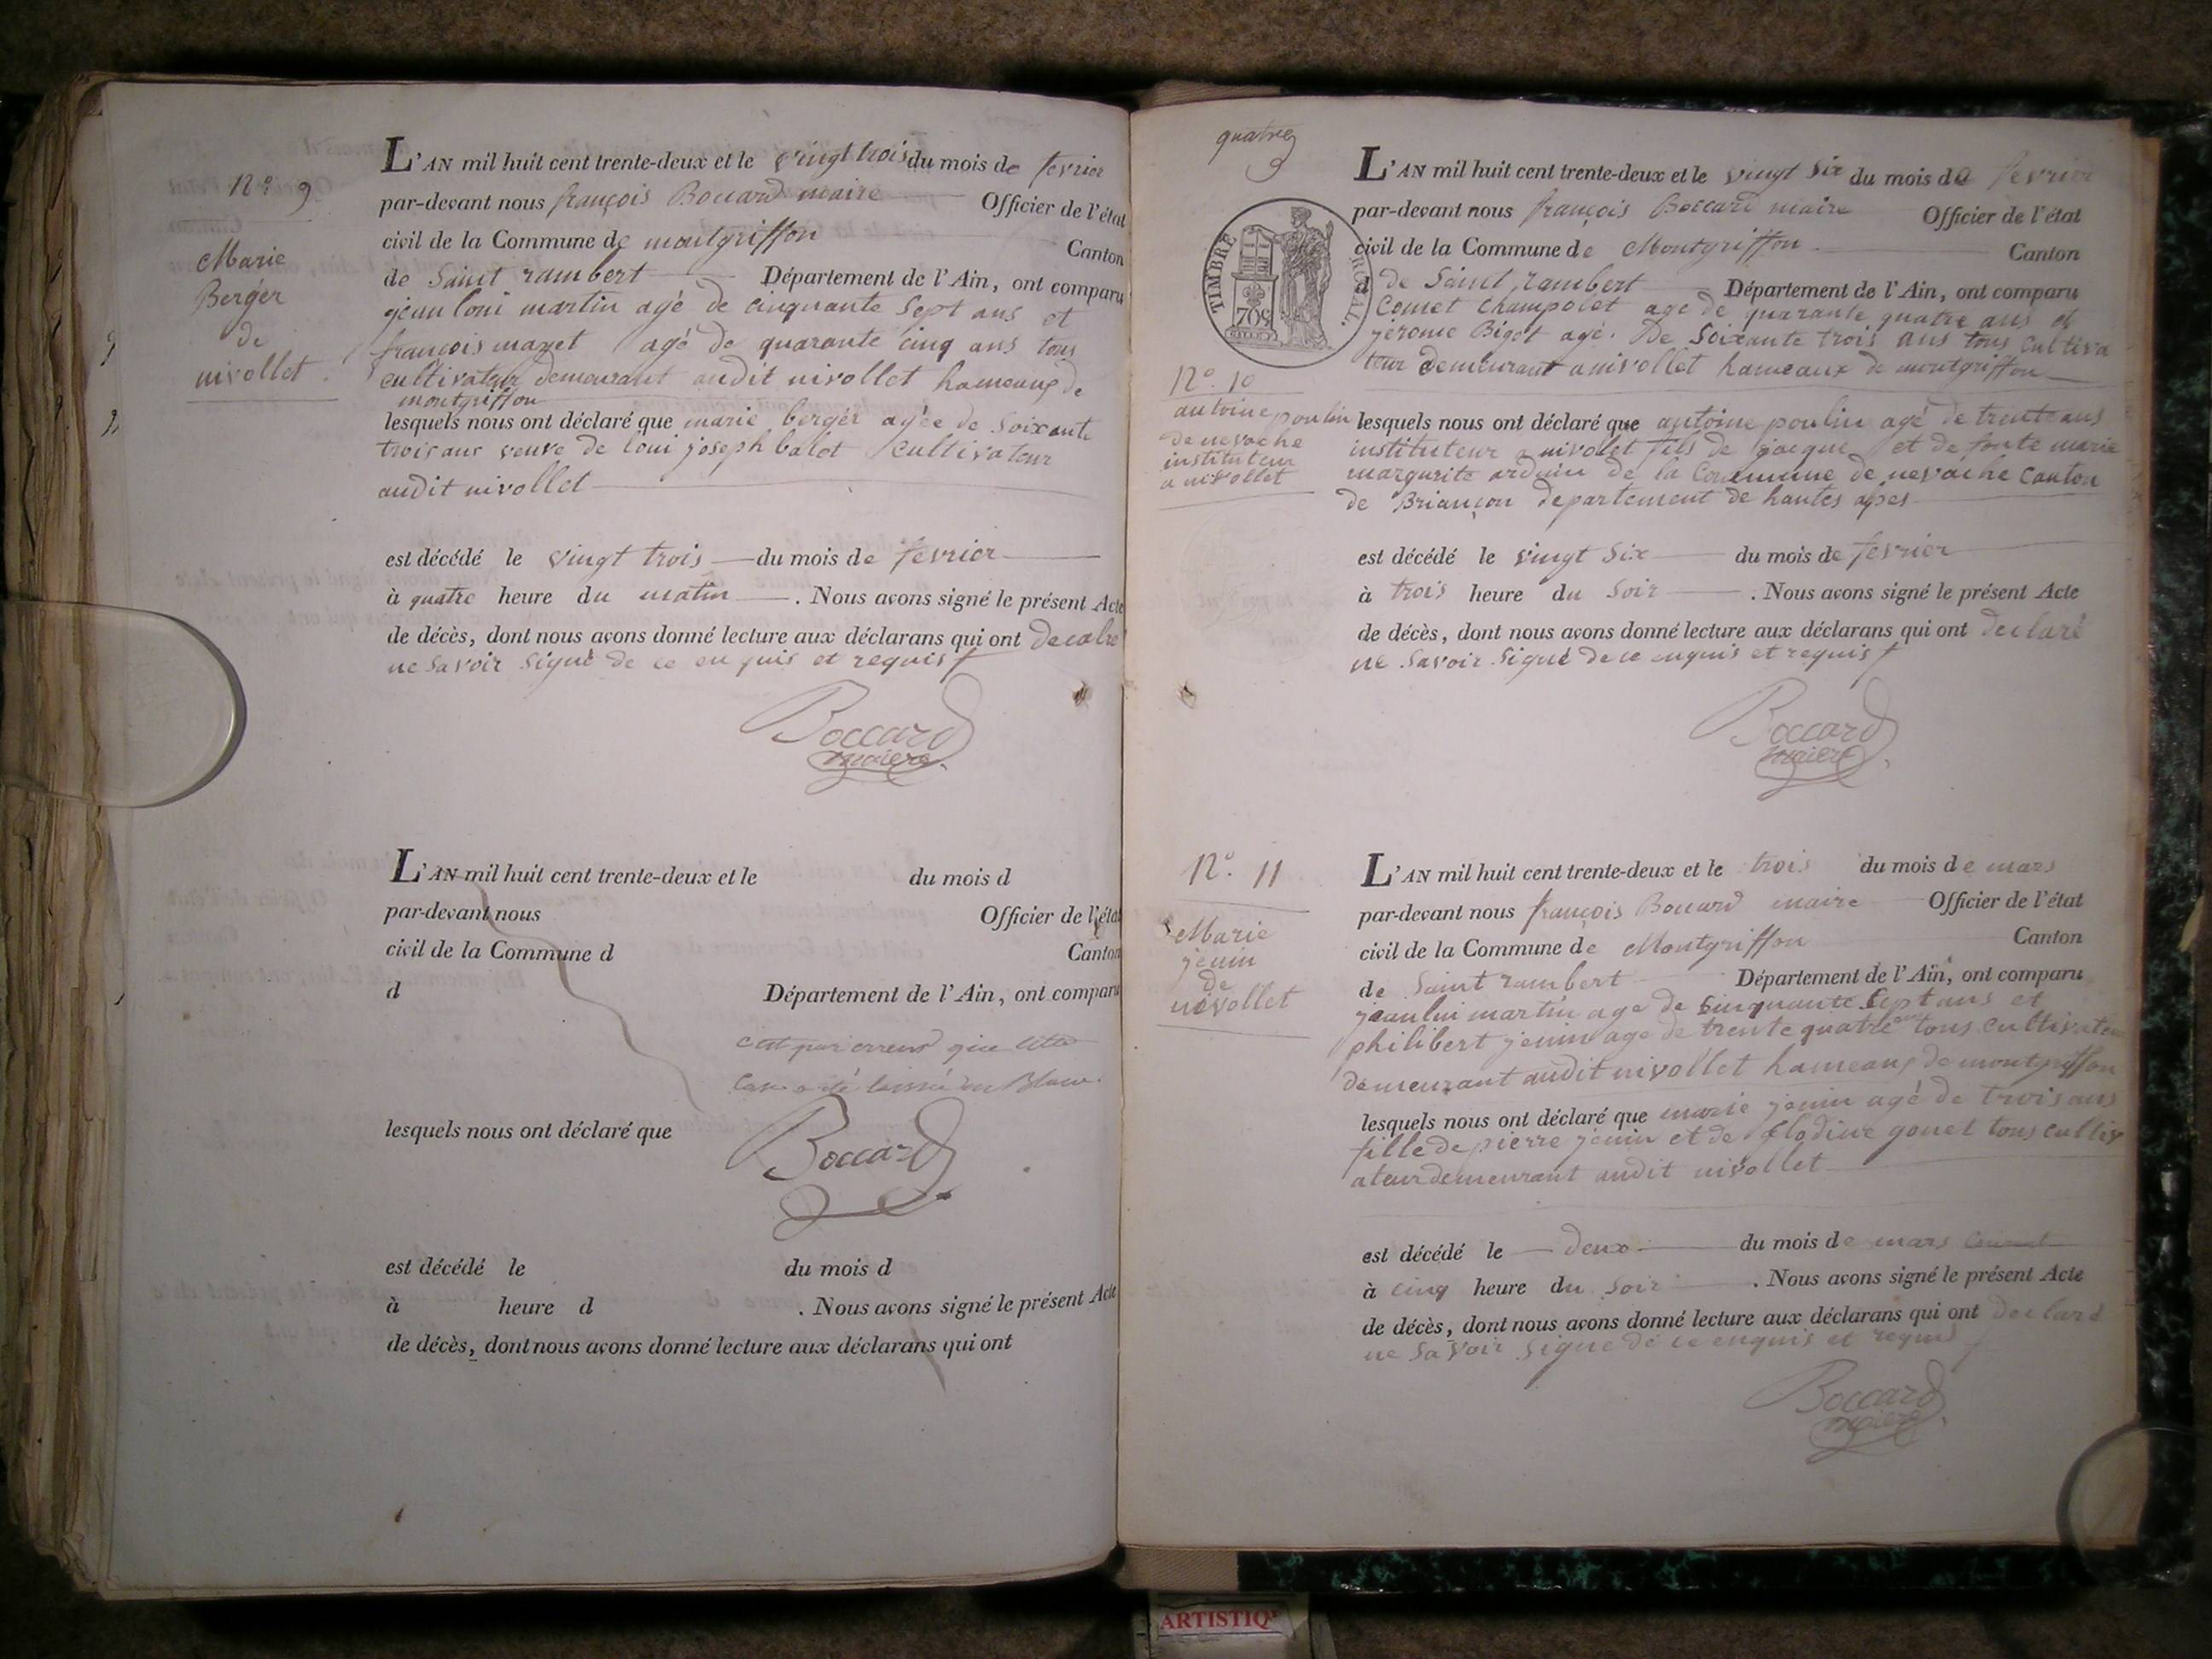 N.º 9
Marie
Berger
de
nivollet.
L'AN mil huit cent trente-deux et le vingt trois du mois de fevrier
par-devant nous françois Boccard maire Officier de l'état
civil de la Commune de montgriffon Canton
de Saint rambert Département de l'Ain, ont comparu
jean loui martin agé de cinquante sept ans et
françois mazet agé de quarante cinq ans tous
cultivateur demeurant audit nivollet hameaux de
montgriffon
lesquels nous ont déclaré que marie berger agée de soixante
trois ans veuve de loui joseph balot cultivateur
audit nivollet
est décédé le vingt trois du mois de fevrier
à quatre heure du matin . Nous avons signé le présent Acte
de décès, dont nous avons donné lecture aux déclarans qui ont
ne savoir signé de ce en quis et requis
Boccard
maire
L'AN mil huit cent trente-deux et le du mois d
par-devant nous Officier de l'état
civil de la Commune d Canton
d Département de l'Ain, ont comparu
c'est par erreur que cette
case a été laissée en Blanc.
lesquels nous ont déclaré que
Boccard
est décédé le du mois d
à heure d . Nous avons signé le présent Acte
de décès, dont nous avons donné lecture aux déclarans qui ont
quatre
TIMBRE ROYAL.
70c
N.º 10
antoine poulin
de nevache
instituteur
a nivollet
L'AN mil huit cent trente-deux et le vingt six du mois de fevrier
par-devant nous françois Boccard maire Officier de l'état
civil de la Commune de Montgriffon Canton
d de Saint rambert Département de l'Ain, ont comparu
Comet champolet agé de quarante quatre ans et
jerome Bigot agé. De Soixante trois ans tous cultiva
teur demeurant a nivollet hameaux de montgriffon
lesquels nous ont déclaré que antoine poulin agé de trente ans
instituteur a nivolet fils de jacque et de marie
margurite arduin de la Commune de nevache canton
de Briançon departement de hautes alpes
est décédé le vingt six du mois de fevrier
à trois heure du soir . Nous avons signé le présent Acte
de décès, dont nous avons donné lecture aux déclarans qui ont declaré
ne savoir signé de ce enquis et requis
Boccard
maire
N.º 11
Marie
jenin
de
nivollet
L'AN mil huit cent trente-deux et le trois du mois de mars
par-devant nous françois Boccard maire Officier de l'état
civil de la Commune de Montgriffon Canton
de Saint rambert Département de l'Ain, ont comparu
jean lui martin age de sinquante sept ans et
philibert jenin age de trente quatre ans tous cultivateur
demeurant audit nivollet hameaux de montgriffon
lesquels nous ont déclaré que marie jenin agé de trois ans
fille de pierre jenin et de clodine gonet tous cultiv
ateur demeurant audit nivollet
est décédé le deux du mois de mars courant
à cinq heure du soir . Nous avons signé le présent Acte
de décès, dont nous avons donné lecture aux déclarans qui ont declaré
ne savoir signe de ce enquis et requis
Boccard
maire
ARTISTIQ